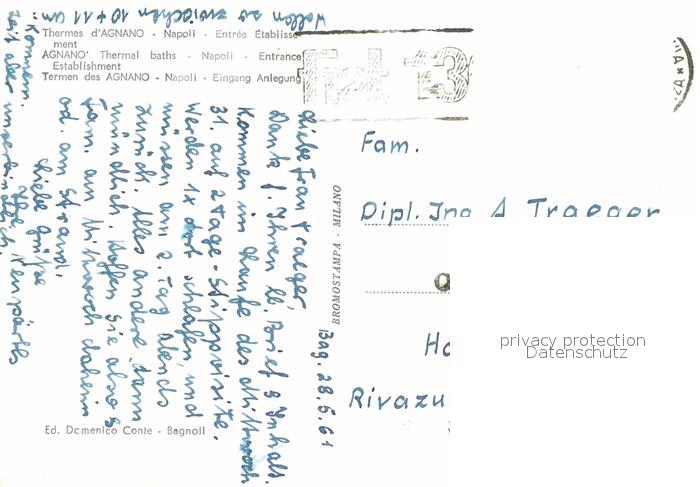 Thermes d'AGNANO - Napoli - Entrée Établisse-
ment
AGNANO' Thermal baths - Napoli - Entrance
Establishment
Termen des AGNANO - Napoli - Eingang Anlegung
BROMOSTAMPA - MILANO
Ed. Domenico Conte - Bagnoli
Bag. 28.6.61
Liebe Frau Traeger,
Dank f. Ihren lb. Brief & Inhalt.
Kommen im Laufe des Mittwoch
31. auf 2 Tage-Stippvisite.
Werden 1x dort schlafen und
müssen am 2. Tag abends
zurück. Alles andere dann
mündlich. Hoffen Sie also &
Fam. am Mittwoch daheim
od. am Strand.
Liebe Grüße
Ihre
Wollen so zwischen 10 + 11 Uhr
kommen.
Zeit aber unverbindlich.
Fam.
Dipl. Ing A Traeger
Ha
Rivazu
privacy protection
Datenschutz